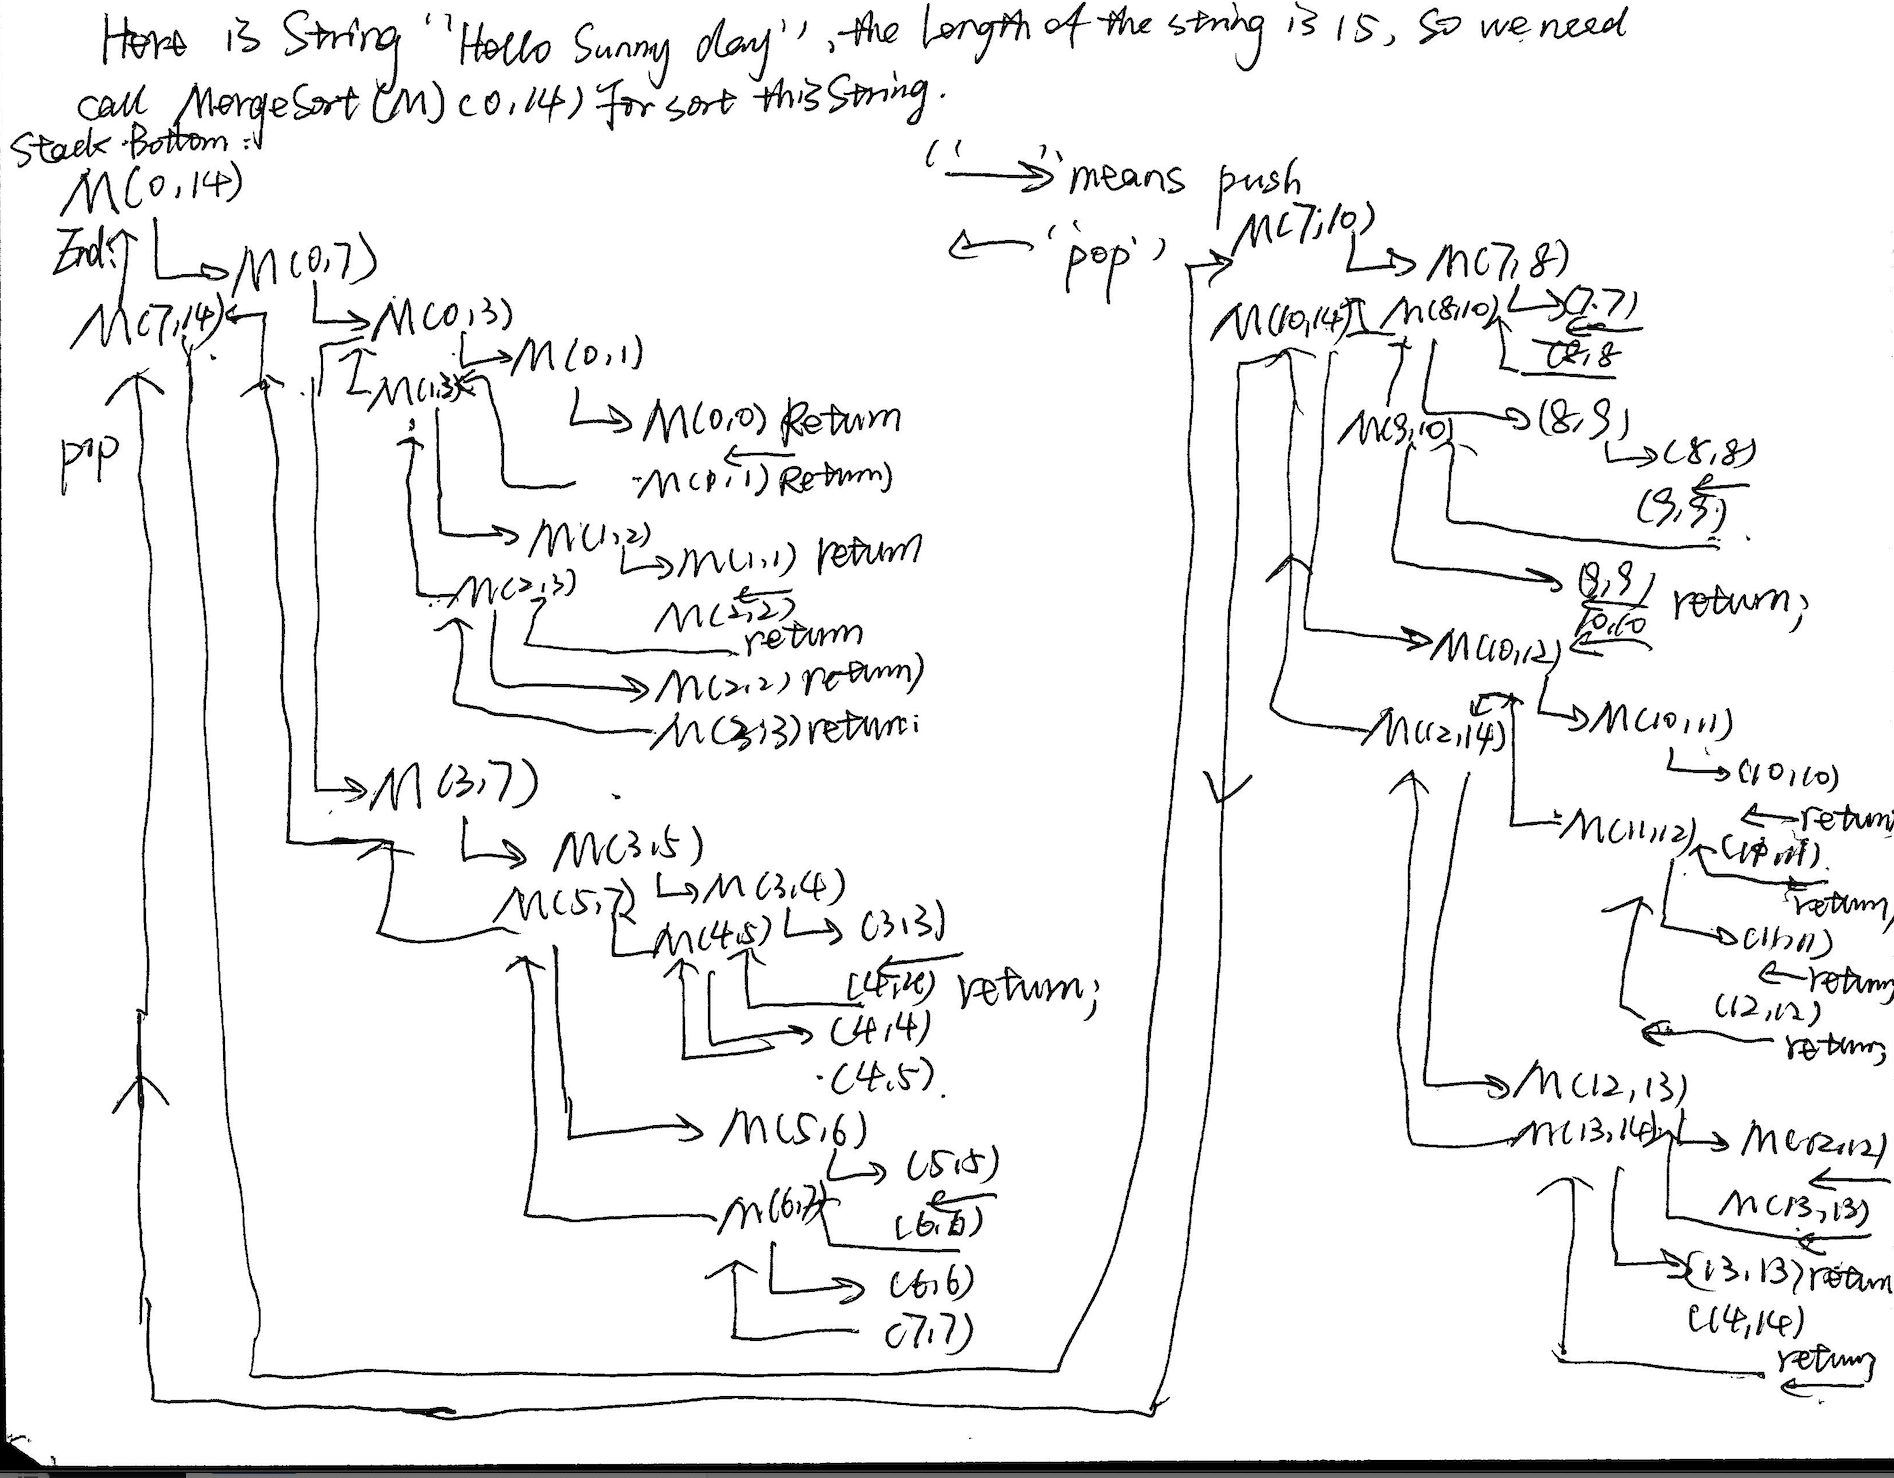 Here is String "Hello Sunny day", the Length of the string is 15, So we need
call MergeSort (M) (0,14) for sort this String.
Stack Bottom:
M(0,14)
End:
M(0,7)
M(7,14)
M(0,3)
M(0,1)
M(1,3)
M(0,0) Return
pop
M(0,1) Return)
M(1,2)
M(1,1) return
M(2,3)
M(2,2)
return
M(2,2) return)
M(3,3) return;
M(3,7)
M(3,5)
M(5,7)
M(3,4)
M(4,5)
(3,3)
(4,4) return;
(4,4)
(4,5)
M(5,6)
(5,5)
M(6,7)
(6,6)
(6,6)
(7,7)
"→" means push
← "pop"
M(7,10)
M(7,8)
M(10,14)
M(8,10)
(7,7)
(8,8
M(9,10)
(8,9)
(8,8)
(9,9)
(9,9)
return;
10,10
M(10,12)
M(12,14)
M(10,11)
(10,10)
return
M(11,12)
(11,11)
return
(11,11)
return
(12,12)
return;
M(12,13)
M(13,14)
M(12,12)
M(13,13)
(13,13) return
(14,14)
return